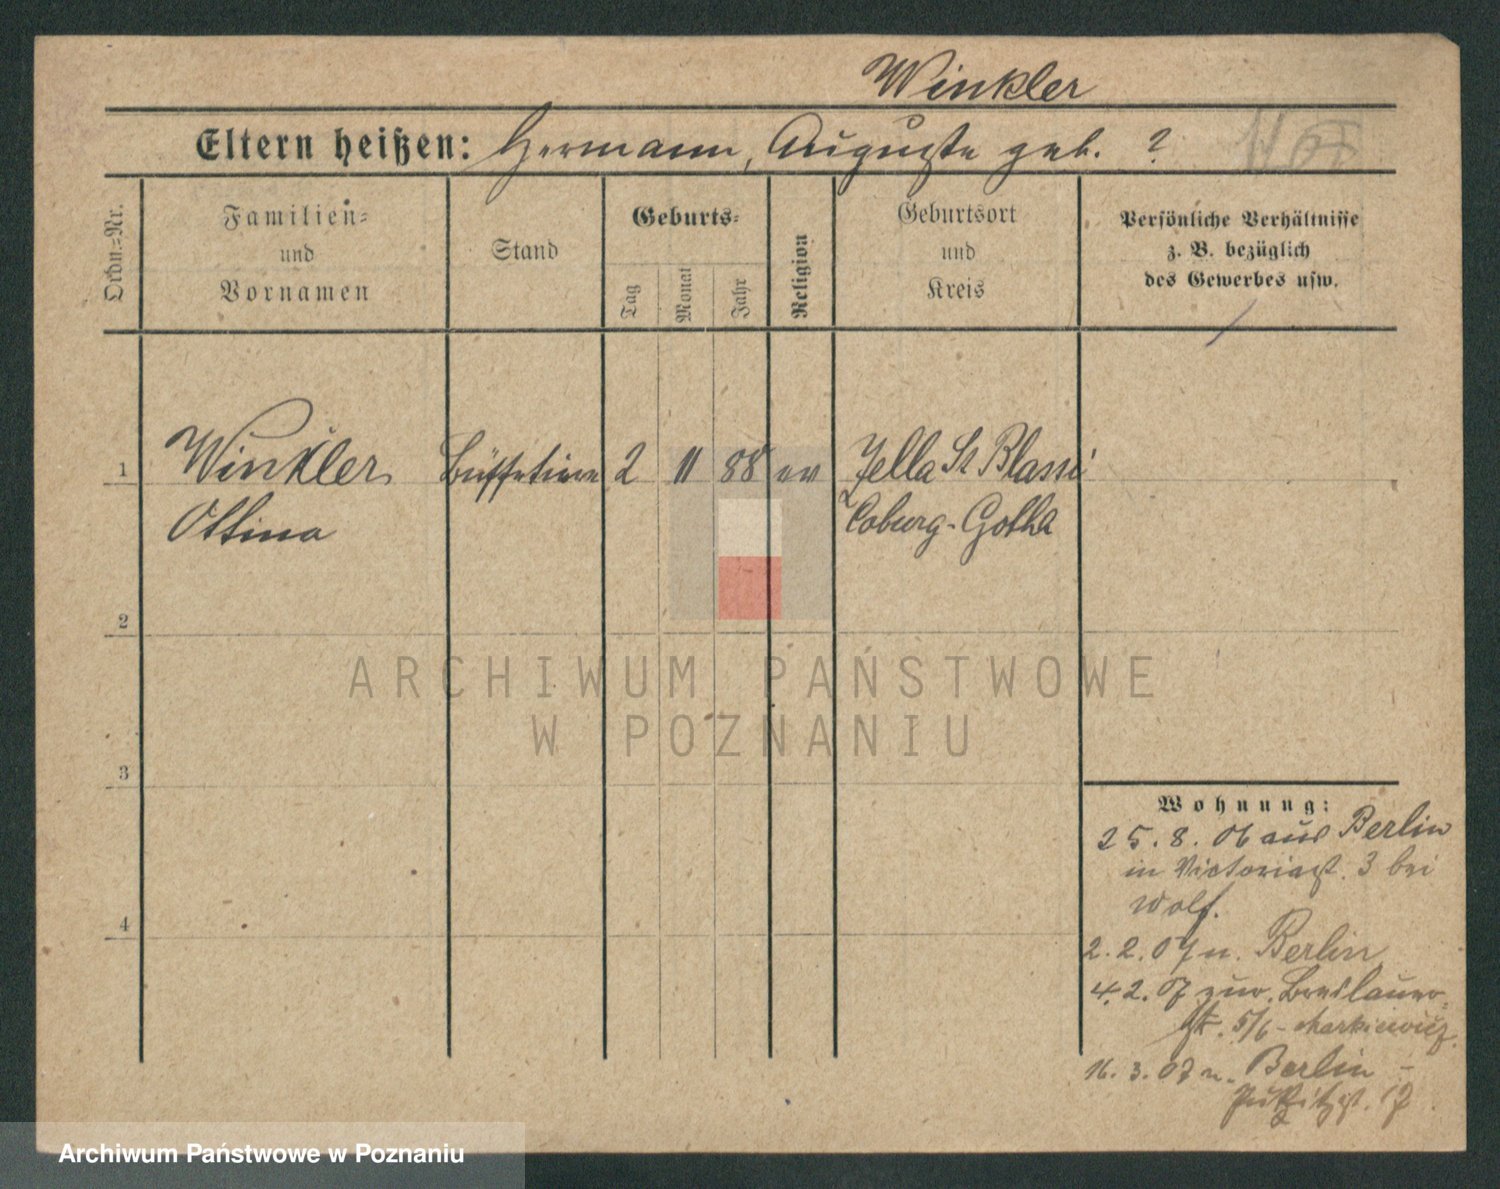 Winkler
Eltern heißen: Hermann, Auguste geb. ?
Ordn.=Nr.
Familien=
und
Vornamen
Stand
Geburts=
Tag
Monat
Jahr
Religion
Geburtsort
und
Kreis
Persönliche Verhältnisse
z. B. bezüglich
des Gewerbes usw.
1 Winkler Büffetiere 2 11 88 ev Zella St Blasii
Ottina Coburg-Gotha
2
3
4
ARCHIWUM PAŃSTWOWE
W POZNANIU
Wohnung:
25. 8. 06 aus Berlin
in Victoriast. 3 bei
Wolf.
2. 2. 07 n. Berlin
4. 2. 07 zur. Breslauer=
str. 5/6 - Markiewicz.
16. 3. 07 n. Berlin -
17
Archiwum Państwowe w Poznaniu